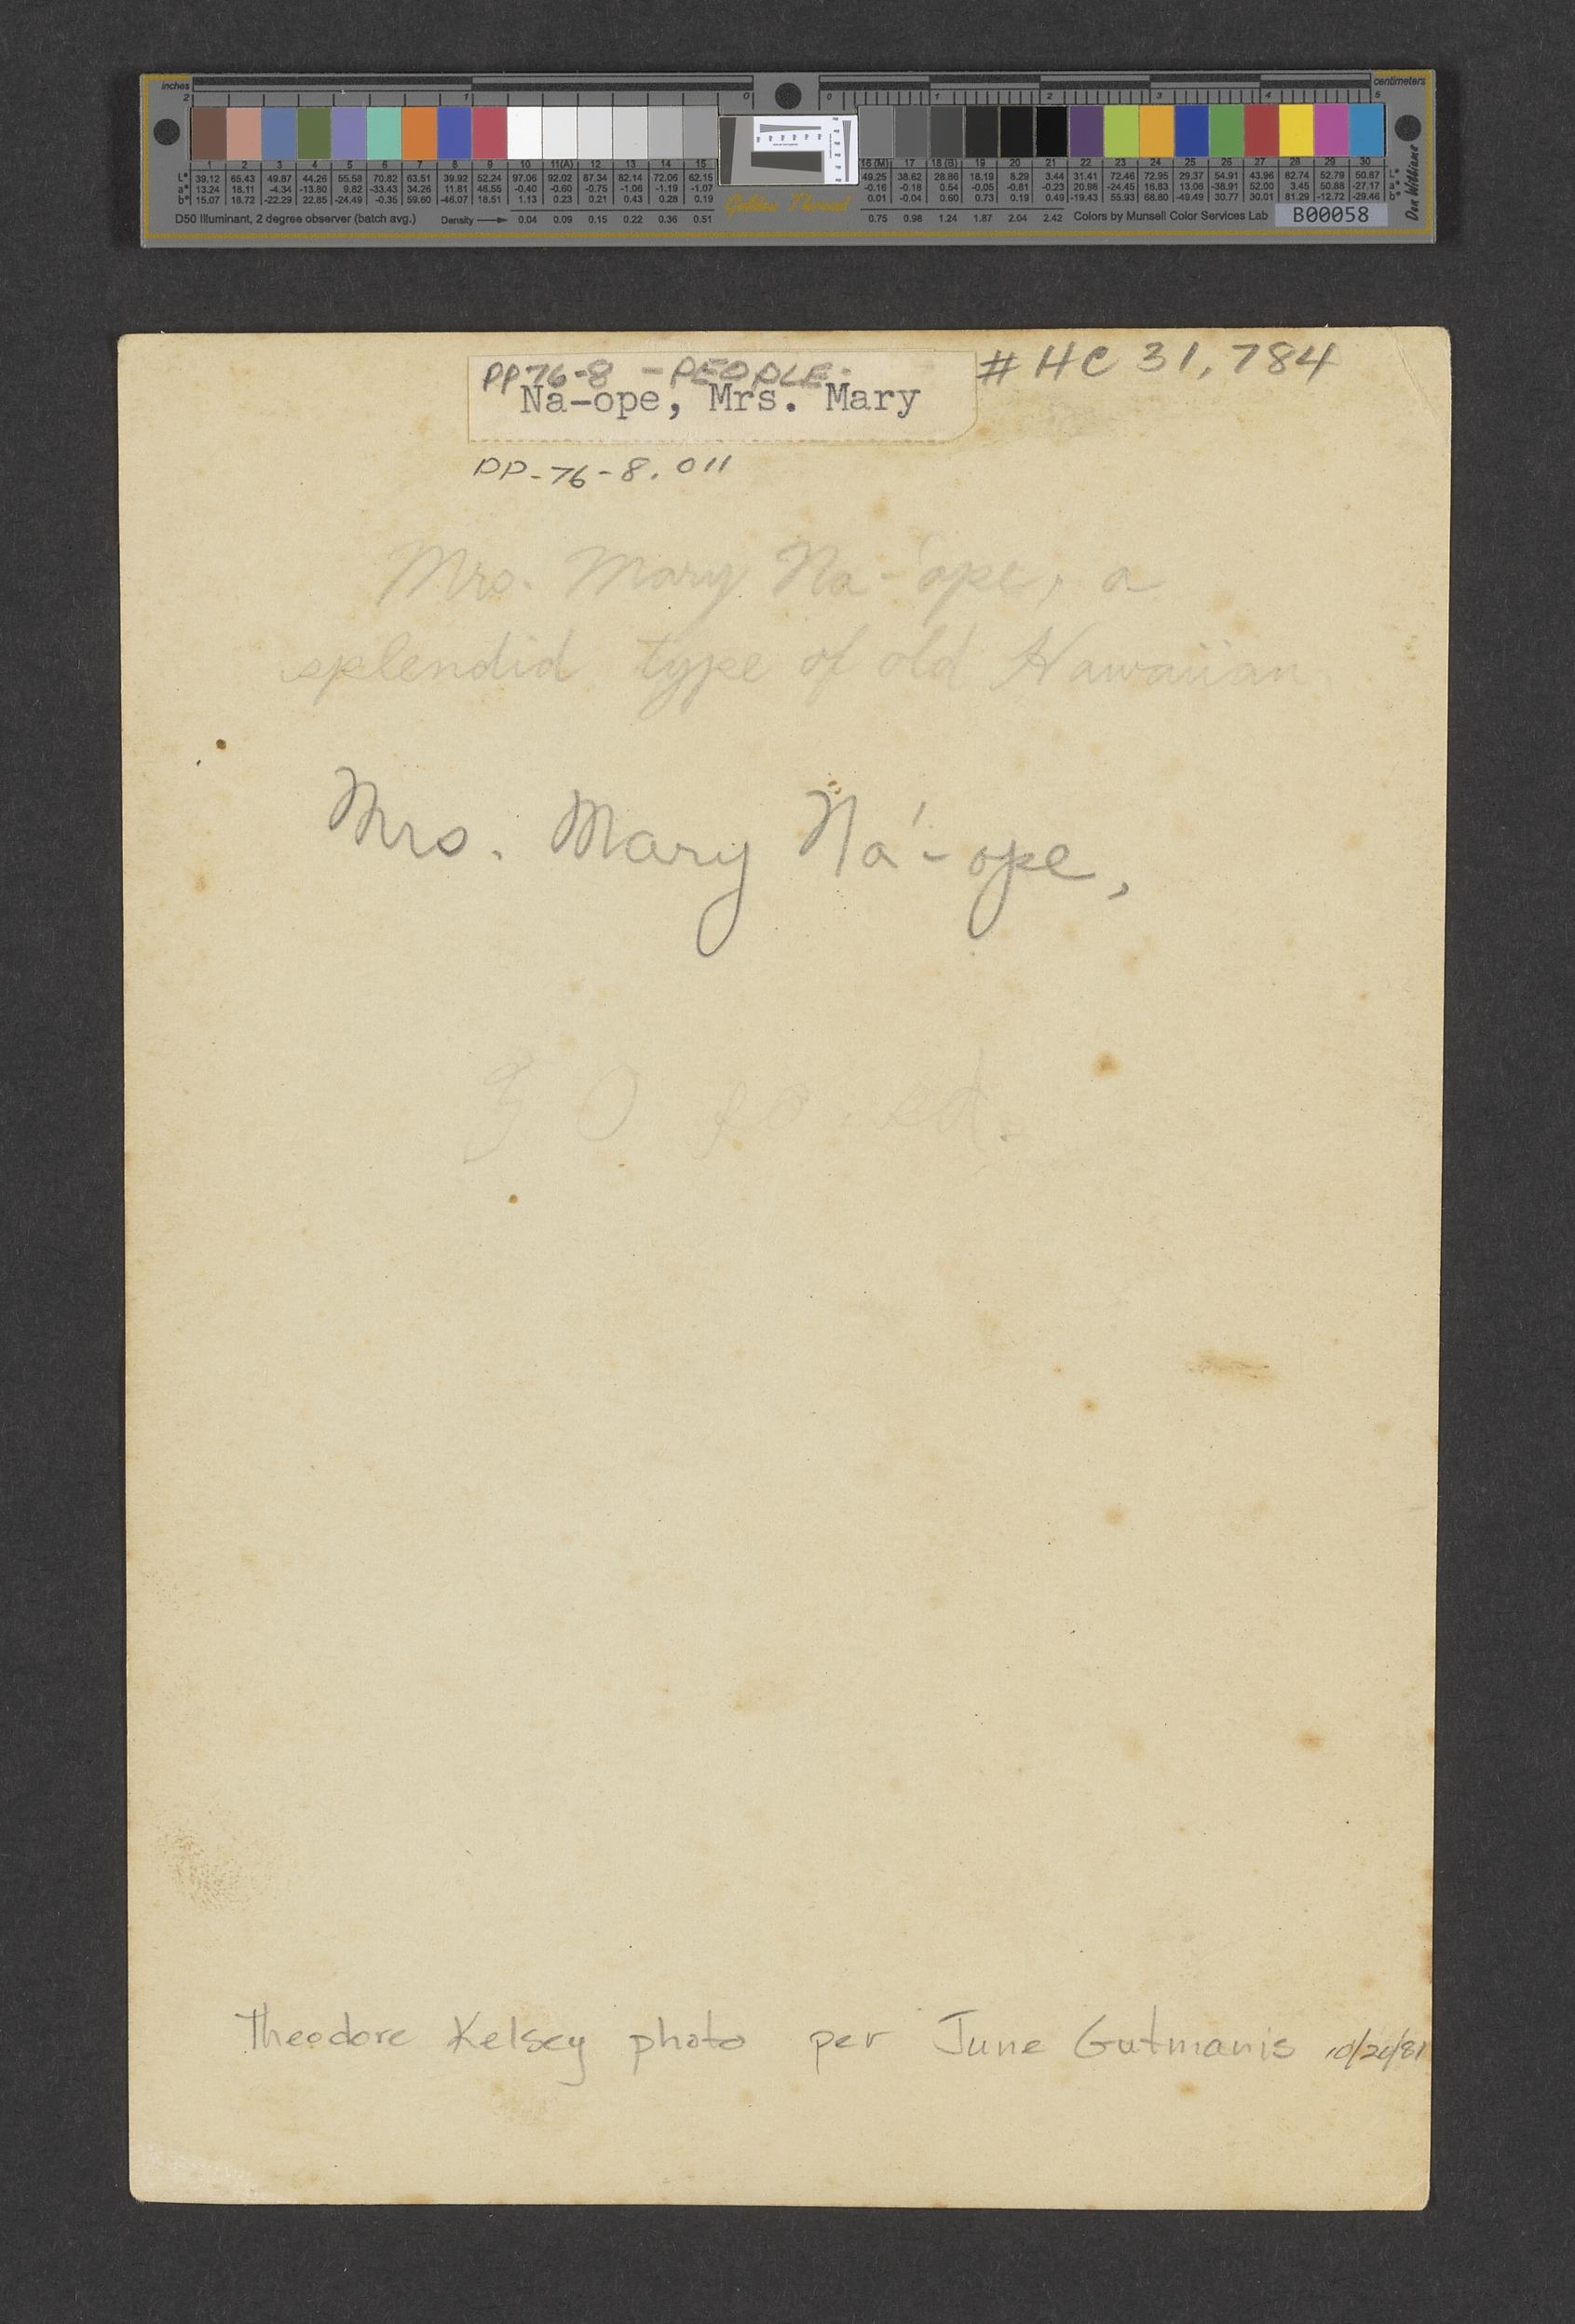 inches
centimeters
2 1 0 0 1 2 3 4 5
1 2 3 4 5 6 7 8 9 10 11(A) 12 13 14 15 16 (M) 17 18 (B) 19 20 21 22 23 24 25 26 27 28 29 30
L* 39.12 65.43 49.87 44.26 55.58 70.82 63.51 39.92 52.24 97.06 92.02 87.34 82.14 72.06 62.15 49.25 38.62 28.86 18.19 8.29 3.44 31.41 72.46 72.95 29.37 54.91 43.96 82.74 52.79 50.87 L*
a* 13.24 18.11 -4.34 -13.80 9.82 -33.43 34.26 11.81 48.55 -0.40 -0.60 -0.75 -1.06 -1.19 -1.07 -0.16 -0.18 0.54 -0.05 -0.81 -0.23 20.98 -24.45 16.83 13.06 -38.91 52.00 3.45 50.88 -27.17 a*
b* 15.07 18.72 -22.29 22.85 -24.49 -0.35 59.60 -46.07 18.51 1.13 0.23 0.21 0.43 0.28 0.19 0.01 -0.04 0.60 0.73 0.19 0.49 -19.43 55.93 68.80 -49.49 30.77 30.01 81.29 -12.72 -29.46 b*
D50 Illuminant, 2 degree observer (batch avg.) Density 0.04 0.09 0.15 0.22 0.36 0.51 Golden Thread 0.75 0.98 1.24 1.87 2.04 2.42 Colors by Munsell Color Services Lab B00058
Don Williams
PP76-8 - PEOPLE- # HC 31,784
Na-ope, Mrs. Mary
PP-76-8.011
Mrs. Mary Na-'ope, a
splendid type of old Hawaiian
Mrs. Mary Na'-ope,
Theodore Kelsey photo per June Gutmanis 10/20/81